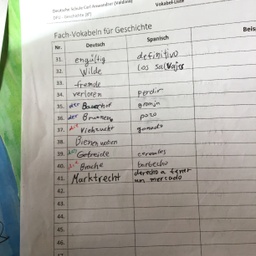 Deutsche Schule Carl
Vokabel-Liste
Fach-Vokabeln für Geschichte
Nr. Deutsch Spanisch Beis
31. engültig definitivo
32. Wilde los salvajes
33. fremde
34. verloren perdir
35. der Bauernhof granja
36. der Brunnen pozo
37. die Viehzucht ganado
38. Bienenwaben
39. das Getreide cereales
40. die Brache barbecho
41. Marktrecht derecho a tener
un mercado
42.
43.
44.
45.
46.
47.